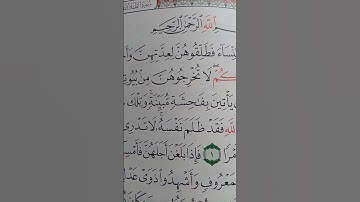 سُورَةُ الطَّلَاقِ
مِ ٱللَّهِ ٱلرَّحْمَٰنِ ٱلرَّحِيمِ
لنِّسَآءَ فَطَلِّقُوهُنَّ لِعِدَّتِهِنَّ وَأَ
كُمْ ۖ لَا تُخْرِجُوهُنَّ مِنۢ بُيُو
يَأْتِينَ بِفَٰحِشَةٍ مُّبَيِّنَةٍ ۚ وَتِلْكَ
ٱللَّهِ فَقَدْ ظَلَمَ نَفْسَهُۥ ۚ لَا تَدْرِى
مْرًا ١ فَإِذَا بَلَغْنَ أَجَلَهُنَّ فَأَمْسِ
مَعْرُوفٍ وَأَشْهِدُوا۟ ذَوَىْ عَدْ